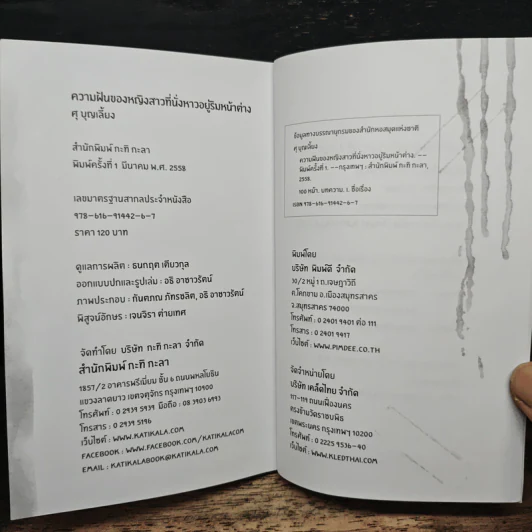 ความฝันของหญิงสาวที่นั่งหาวอยู่ริมหน้าต่าง
ศุ บุญเลี้ยง
สำนักพิมพ์ กะทิ กะลา
พิมพ์ครั้งที่ 1 มีนาคม พ.ศ. 2558
เลขมาตรฐานสากลประจำหนังสือ
978-616-91442-6-7
ราคา 120 บาท
ดูแลการผลิต : ธนกฤต เตียวกุล
ออกแบบปกและรูปเล่ม : อธิ อาชาวรัตน์
ภาพประกอบ : กันตภณ ภัทรชลิต, อธิ อาชาวรัตน์
พิสูจน์อักษร : เจนจิรา ต่ายเทศ
จัดทำโดย บริษัท กะทิ กะลา จำกัด
สำนักพิมพ์ กะทิ กะลา
1857/2 อาคารพรีเมี่ยม ชั้น 6 ถนนพหลโยธิน
แขวงลาดยาว เขตจตุจักร กรุงเทพฯ 10900
โทรศัพท์ : 0 2939 5939 มือถือ : 08 3903 6993
โทรสาร : 0 2939 5196
เว็บไซต์ : WWW.KATIKALA.COM
FACEBOOK : WWW.FACEBOOK.COM/KATIKALACOM
EMAIL : KATIKALABOOK@KATIKALA.COM
ข้อมูลทางบรรณานุกรมของสำนักหอสมุดแห่งชาติ
ศุ บุญเลี้ยง
ความฝันของหญิงสาวที่นั่งหาวอยู่ริมหน้าต่าง. --
พิมพ์ครั้งที่ 1. --กรุงเทพฯ : สำนักพิมพ์ กะทิ กะลา,
2558.
100 หน้า. บทความ. I. ชื่อเรื่อง
ISBN 978-616-91442-6-7
พิมพ์โดย
บริษัท พิมพ์ดี จำกัด
30/2 หมู่ 1 ถ.เจษฎาวิถี
ต.โคกขาม อ.เมืองสมุทรสาคร
จ.สมุทรสาคร 74000
โทรศัพท์ : 0 2401 9401 ต่อ 111
โทรสาร : 0 2401 9417
เว็บไซต์ : WWW.PIMDEE.CO.TH
จัดจำหน่ายโดย
บริษัท เคล็ดไทย จำกัด
117-119 ถนนเฟื่องนคร
ตรงข้ามวัดราชบพิธ
เขตพระนคร กรุงเทพฯ 10200
โทรศัพท์ : 0 2225 9536-40
เว็บไซต์ : WWW.KLEDTHAI.COM